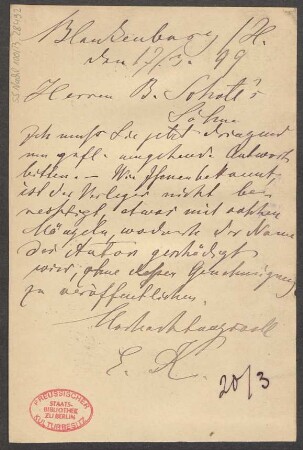 Blankenburg /H.
den 17/3. 99
Herren B. Schott's
Söhne
Ich muß Sie jetzt dringend
um gefl. umgehende Antwort
bitten. – Wie Ihnen bekannt,
ist der Verleger nicht be-
rechtigt etwas mit solchen
Mängeln, wodurch der Name
des Autors geschädigt
wird, ohne dessen Genehmigung
zu veröffentlichen.
Hochachtungsvoll
E. K.
20/3
PREUSSISCHER
STAATS-
BIBLIOTHEK
ZU BERLIN
KULTURBESITZ